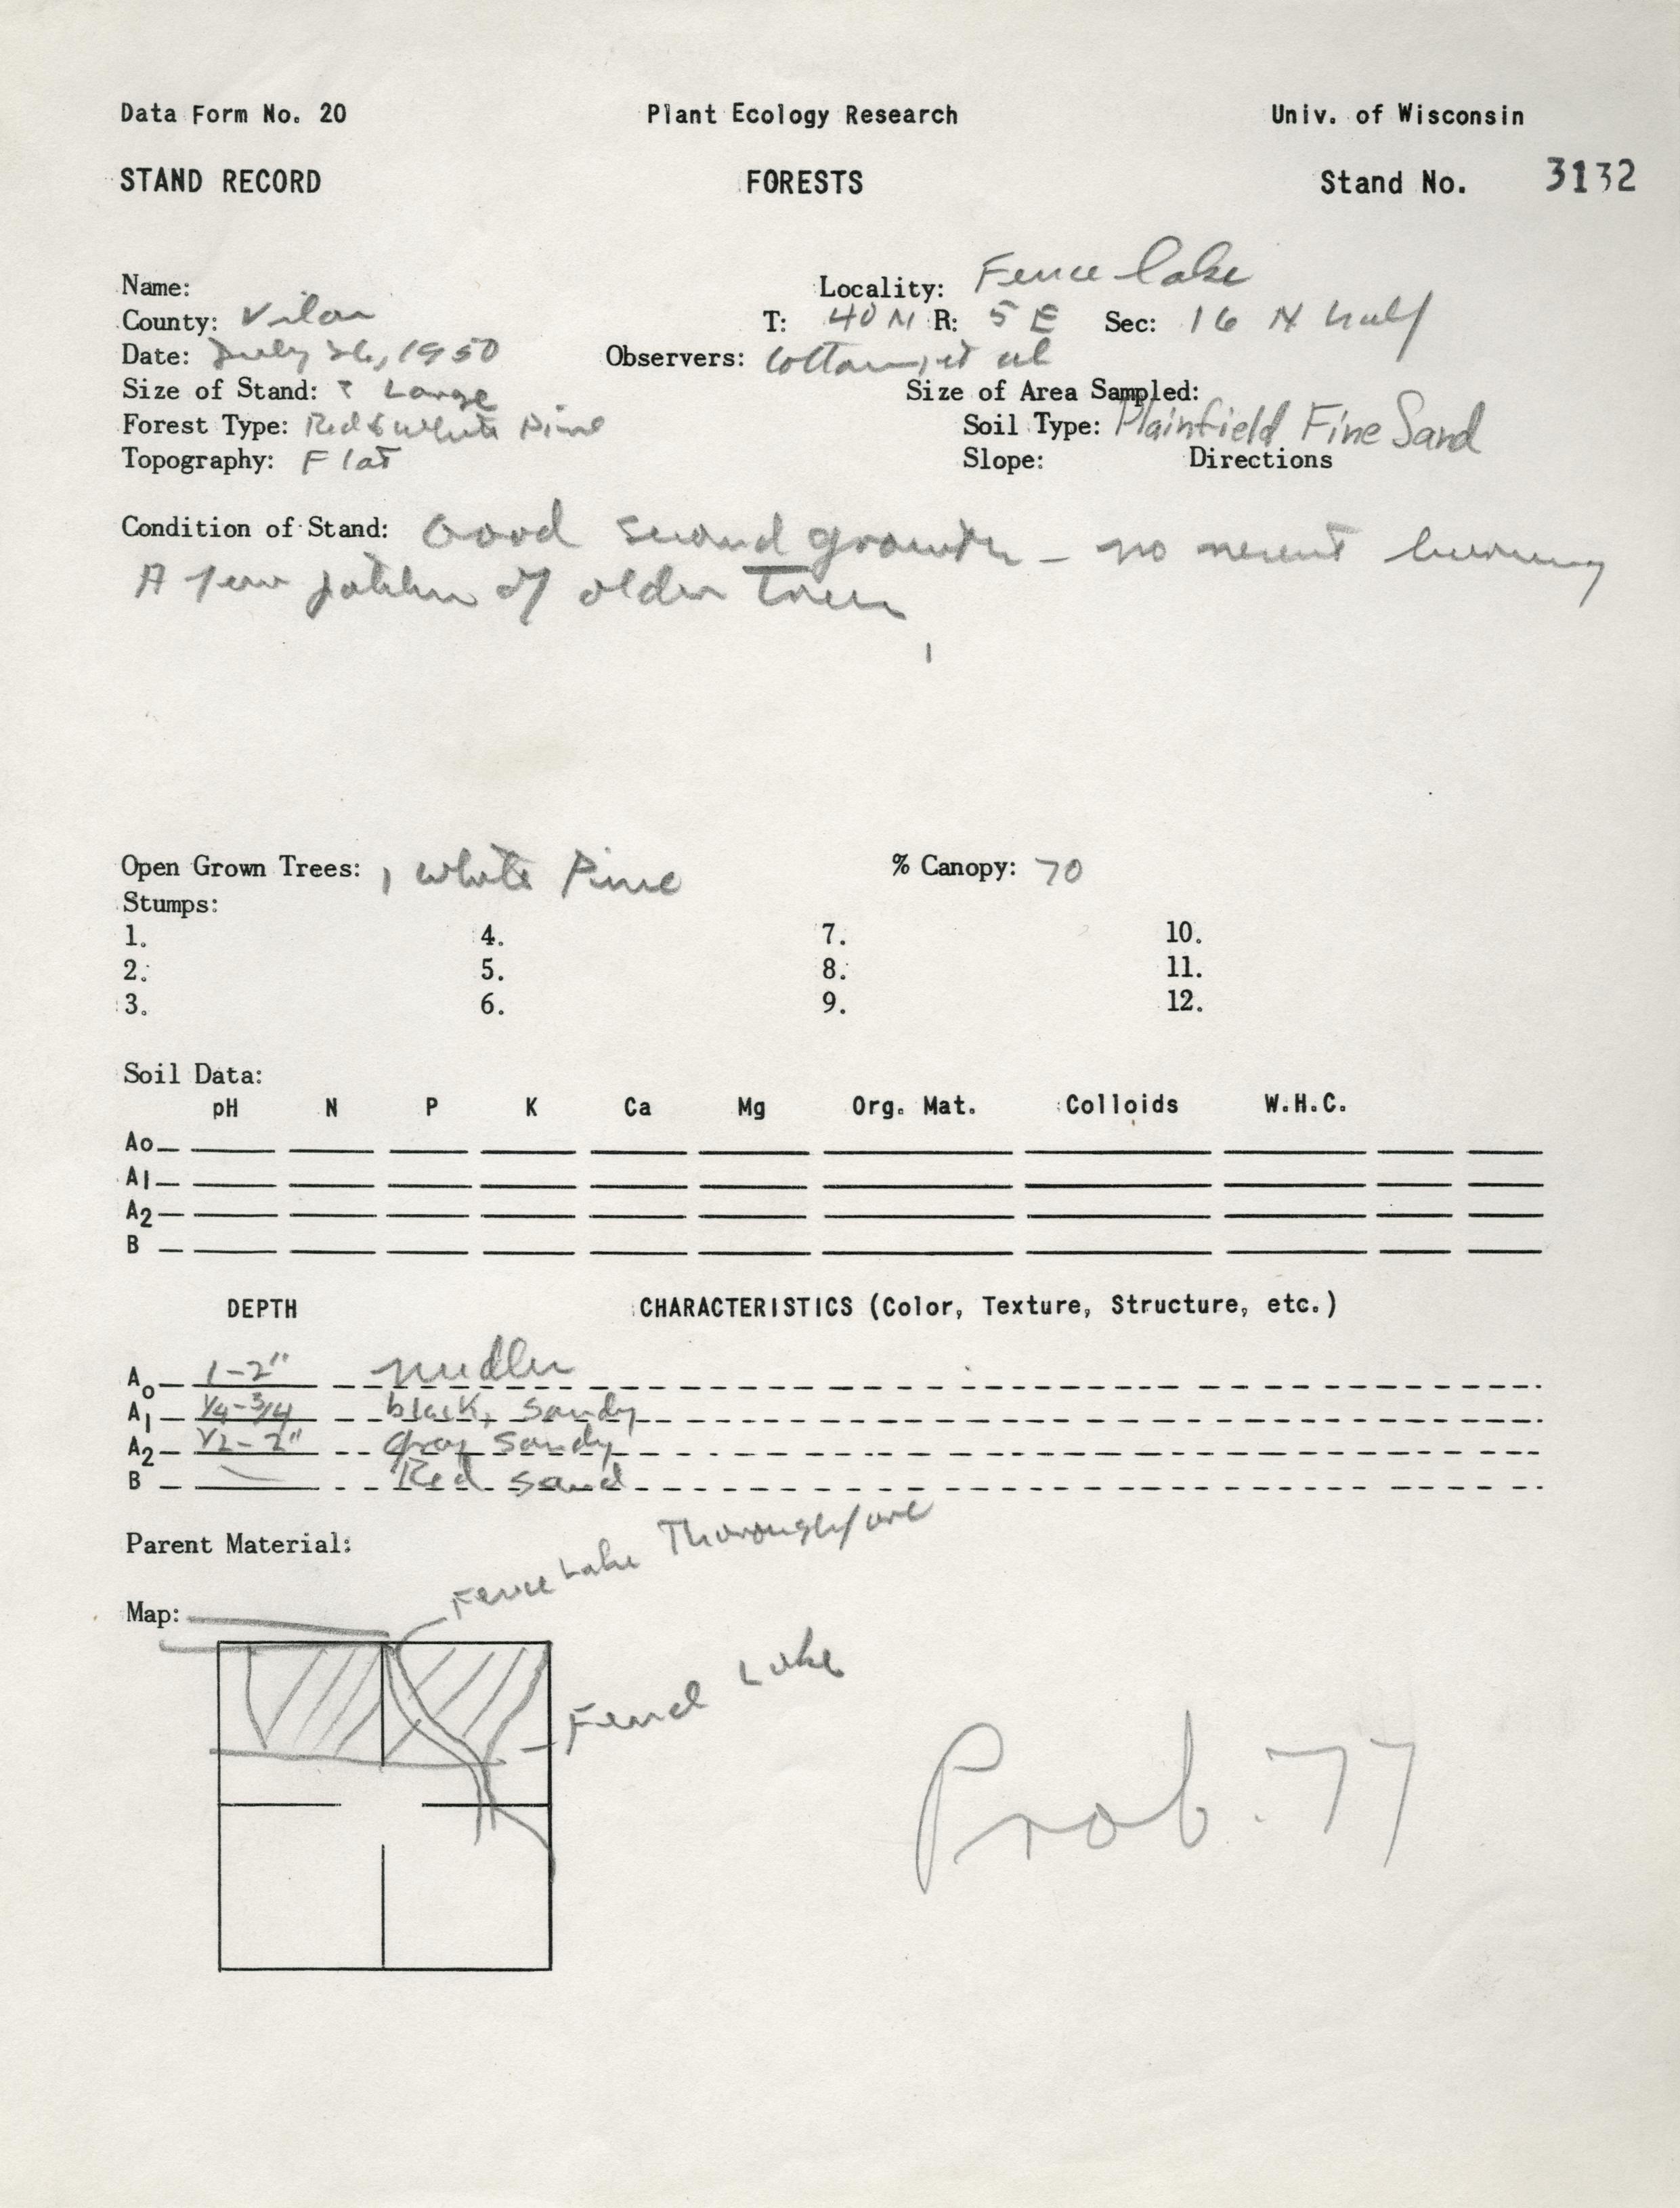 Data Form No. 20 Plant Ecology Research Univ. of Wisconsin
STAND RECORD FORESTS Stand No. 3132
Name: Locality: Fence Lake
County: Vilas T: 40 N R: 5 E Sec: 16 N half
Date: July 26, 1950 Observers: Cottam, et al
Size of Stand: ? Large Size of Area Sampled:
Forest Type: Red & White Pine Soil Type: Plainfield Fine Sand
Topography: Flat Slope: Directions
Condition of Stand: Good second growth - no recent burning
A few patches of older trees
Open Grown Trees: 1 White Pine % Canopy: 70
Stumps:
1. 4. 7. 10.
2. 5. 8. 11.
3. 6. 9. 12.
Soil Data:
pH N P K Ca Mg Org. Mat. Colloids W.H.C.
Ao
A1
A2
B
DEPTH CHARACTERISTICS (Color, Texture, Structure, etc.)
Ao 1-2" needles
A1 1/4-3/4 black, sandy
A2 1/2-2" gray sandy
B Red sand
Parent Material:
Fence Lake Thoroughfare
Map:
Fence Lake
Prob. 77